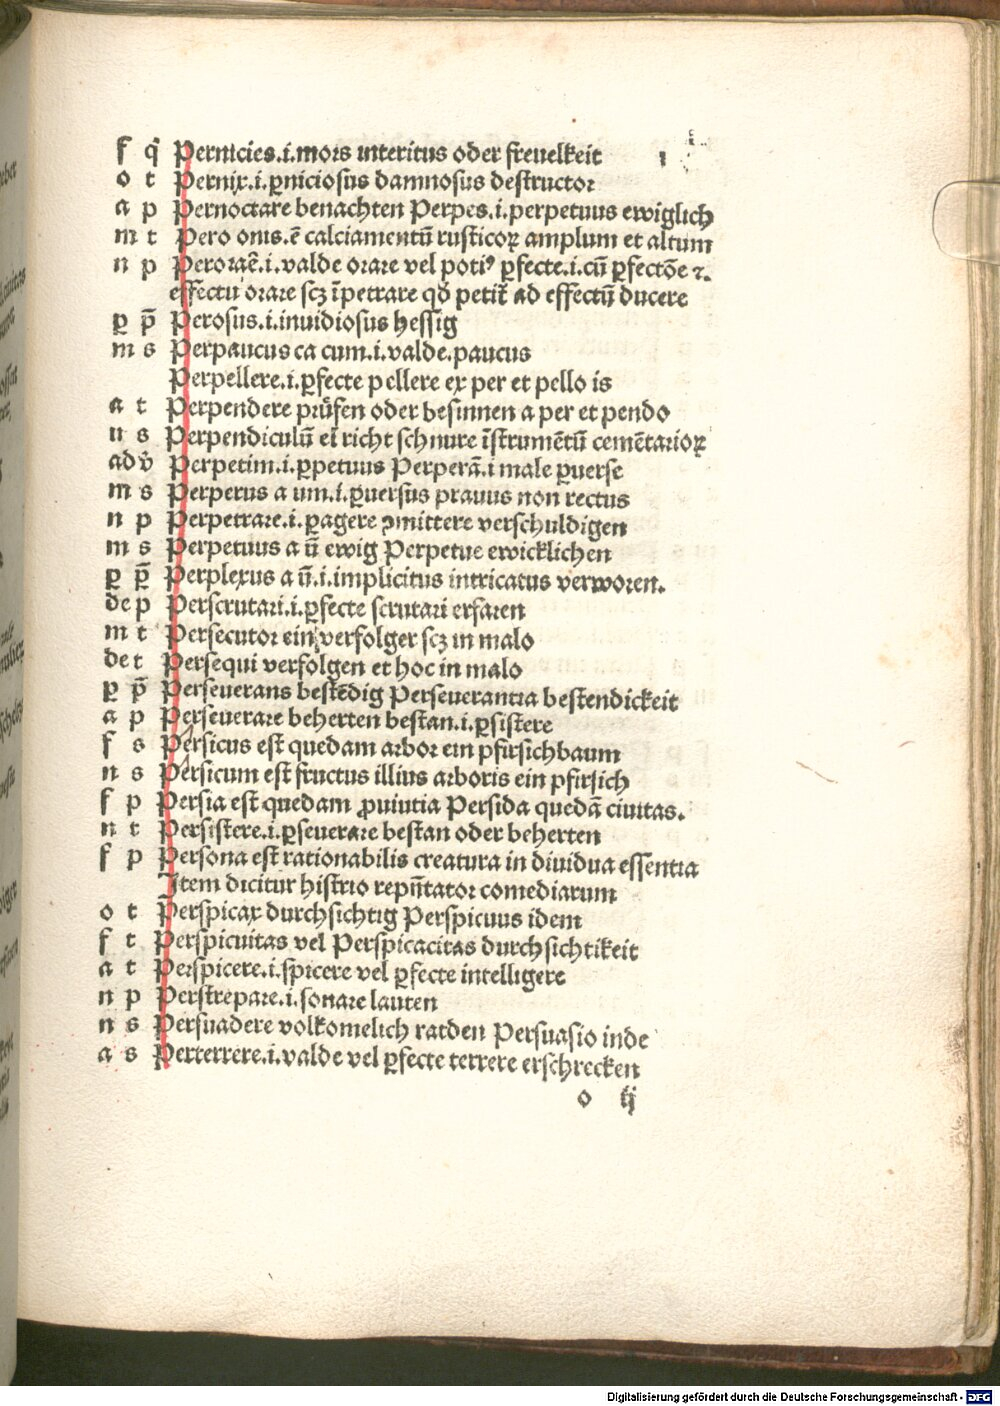 f q̄ Pernicies.i.mors interitus oder freuelkeit
o t Pernix.i.ꝑniciosus damnosus destructor
a p Pernoctare benachten Perpes.i.perpetuus ewiglich
m t Pero onis.ē calciamentū rusticoꝝ amplum et altum
n p Peroraē.i.valde orare vel poti⁹ ꝑfecte.i.cū ꝑfectōe ⁊.
effectu orare scꝫ īpetrare qd̄ petit̄ ad effectū ducere
ꝑ p̄ Perosus.i.inuidiosus hessig
m s Perpaucus ca cum.i.valde.paucus
Perpellere.i.ꝑfecte pellere ex per et pello is
a t Perpendere prüfen oder besinnen a per et pendo
n s Perpendiculū ei richt schnure īstrumētū cemētarioꝝ
adv̄ Perpetim.i.ꝑpetuus Perperā.i male ꝑuerse
m s Perperus a um.i.ꝑuersus prauus non rectus
n p Perpetrare.i.ꝑagere ꝯmittere verschuldigen
m s Perpetuus a ū ewig Perpetue ewicklichen
ꝑ p̄ Perplexus a ū.i.implicitus intricatus verworen.
de p Perscrutari.i.ꝑfecte scrutari erfaren
m t Persecutor ein verfolger scꝫ in malo
de t Persequi verfolgen et hoc in malo
ꝑ p̄ Perseuerans bestēdig Perseuerantia bestendickeit
a p Perseuerare beherten bestan.i.ꝑsistere
f s Persicus est quedam arbor ein pfirsichbaum
n s Persicum est fructus illius arboris ein pfirsich
f p Persia est quedam ꝓuiutia Persida quedā ciuitas.
n t Persistere.i.ꝑseuerare bestan oder beherten
f p Persona est rationabilis creatura in diuidua essentia
Item dicitur histrio repn̄tator comediarum
o t Perspicax durchsichtig Perspicuus idem
f t Perspicuitas vel Perspicacitas durchsichtikeit
a t Perspicere.i.spicere vel ꝑfecte intelligere
n p Perstrepare.i.sonare lauten
n s Persuadere volkomelich ratden Persuasio inde
a s Perterrere.i.valde vel ꝑfecte terrere erschrecken
o ij
Digitalisierung gefördert durch die Deutsche Forschungsgemeinschaft - DFG